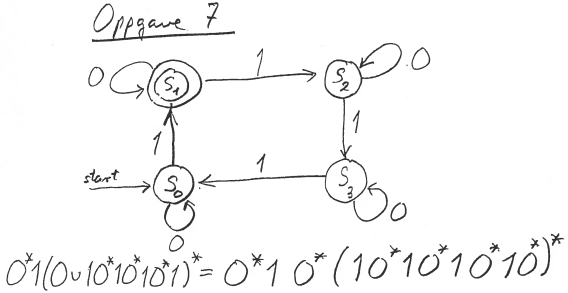 Oppgave 7
0 S₁ 1 S₂ 0
1 1
start S₀ 1 S₃
0 0
0*1(0∪10*10*10*1)* = 0*10*(10*10*10*10*)*